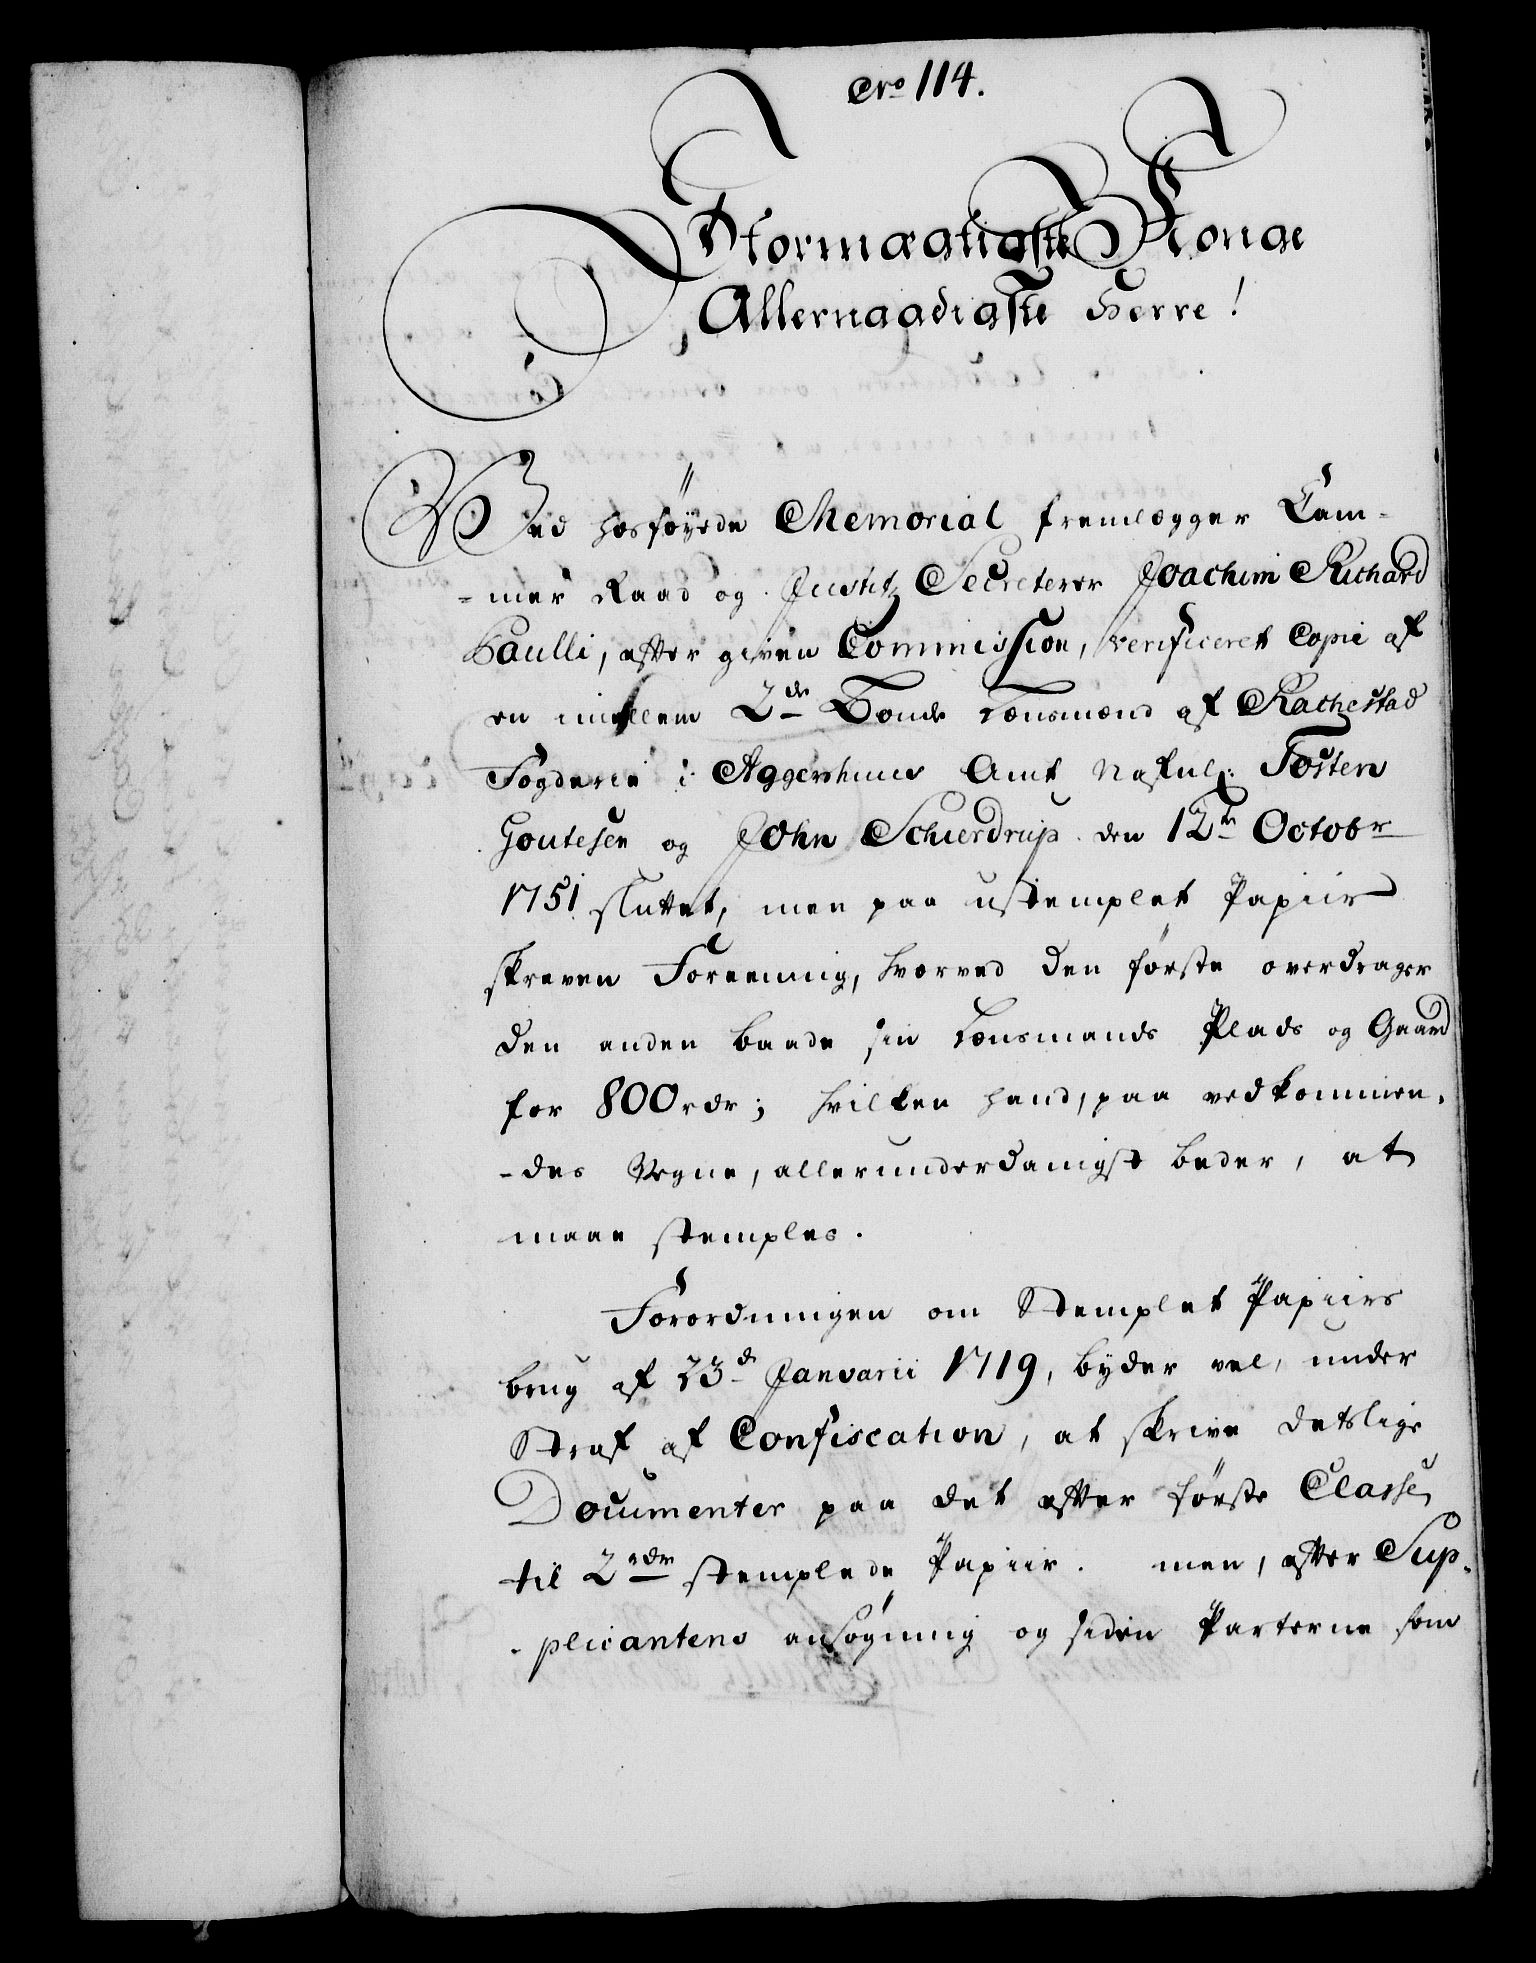 No 114.
Stormægtigste Konge
Allernaadigste Herre!
Ved hosføyede Memorial fremlægger Cam-
-mer Raad og Justitz Secreterer Joachim Richard
Paulli, efter given Commission, verificeret Copie af
en imellem 2de Bonde Lænsmænd af Rachestad
Fogderie i Aggershuus Amt nafnl: Tosten
Goutesen og John Schierdrup den 12te Octobr
1751 sluttet, men paa ustemplet Papiir
skreven Foreening, hvorved den første overdrager
den anden baade sin Lænsmands Plads og Gaard
for 800 rdr; hvilken hand, paa vedkommen-
-des Vegne, allerunderdanigst beder, at
maae stemples.
Forordningen om Stemplet Papiirs
brug af 23d Janvarii 1719, byder vel, under
Straf af Confiscation, at skrive detslige
Documenter paa det efter første Classe
til 2rdr stemplede Papiir. men, efter Sup-
-plicantens ansøgning og siden Parterne som